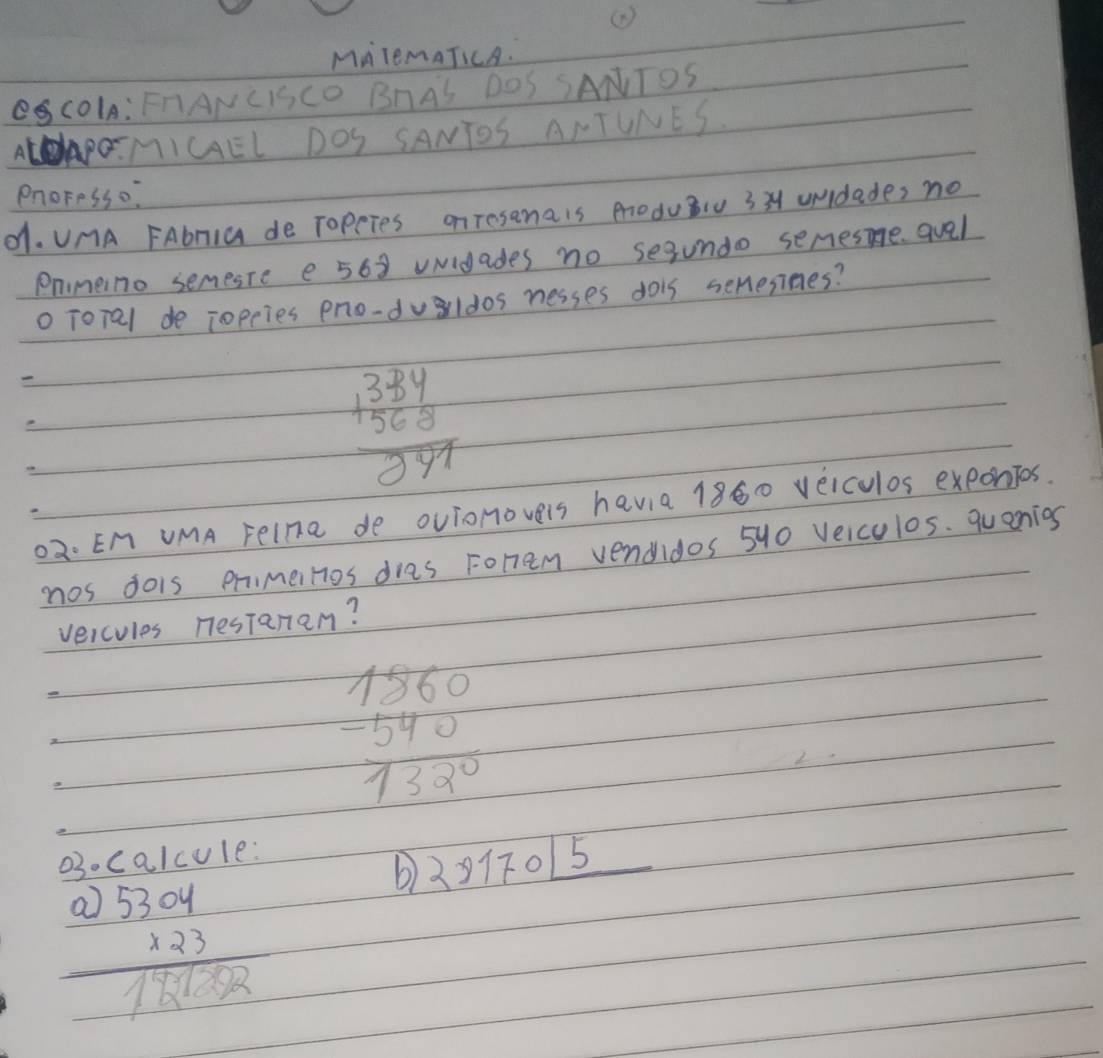 MATEMATICA.
escola: FRANCISCO BRAS DOS SANTOS
MICAEL DOS SANTOS ANTUNES.
Professo:
01. UMA FAbrica de Topetes artesanais produziu unidades no
primeiro semestre e 568 unidades no segundo semestre. qual
o Total de Topetes pro-duzidos nesses dois semestres?
+568
02. EM UMA Feira de outomoveis havia 1860 veiculos expontos.
nos dois primeiros dias Foram vendidos 540 veiculos. quantos
veicules restaram?
1860
-540
1320
03. calcule:
a) 5304 b) 29170 5
x 23